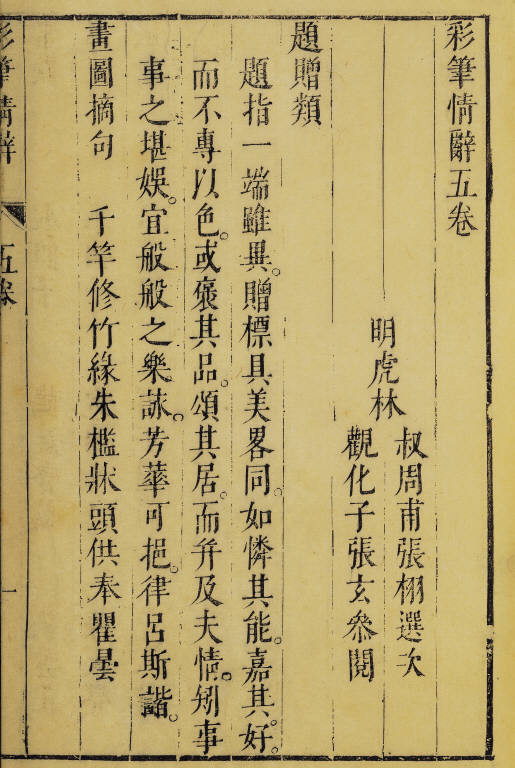 彩筆情辭五卷
明虎林
叔周甫張栩選次
觀化子張玄叅閱
題贈類
題指一端雖異。贈標具美畧同。如憐其能。嘉其好。
而不專以色。或褒其品。頌其居。而并及夫情。矧事
事之堪娛。宜般般之樂。詠芳華可挹。律呂斯諧。
畫圖摘句　千竿修竹緣朱檻牀頭供奉瞿曇
彩筆情辭
五卷
一